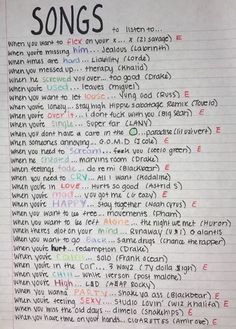 SONGS
to listen to...
when you want to flex on your x... x (21 savage) E
when you're missing him... Jealous (Labrinth)
when times are hard... Liability (Lorde)
when you messed up... therapy (Khalid)
when he screwed you over... too good (Drake)
when you're used... leaves (miguel)
when you want to let loose... (Russ) E
when you're lonely... stay high Hippie Sabotage Remix (Tove lo)
when you're over it... I don't fuck with you (Big Sean) E
when you're single... super far (LANY)
when you dont have a care in the ... paradise (lil uzi vert) E
when someones annoying... G.O.M.D (J.Cole) E
when you need to scream... feel you (cee lo green) E
when he cheated... marvins room (Drake) E
when feelings fade... do re mi (Blackbear) E
when you need to CRY... All I want (Kodaline)
when you're in love... Hurts so good (Astrid S)
when you're mad... you got me (G Eazy) E
when you're HAPPY... stay together (Noah Cyrus)
when you want to be free... movements (Pham)
when you want to be left alone... the night we met (Huron)
when there's alot on your mind... Runaway (U & I) Galantis
when you want to go back... same drugs (chance the rapper)
when you're hurt... redemption (Drake)
when you're solo (Frank Ocean) E
when you're in the car... 3 wayz (Ty dolla $ign) E
when you're CHILL... white iverson (post malone) E
when you're High... LSD (A$AP Rocky) E
when you wanna PARTY... shake ya ass (Blackbear) E
when you're feeling SEXY... studio lovin' (wiz Khalifa) E
when you miss the old days... dimelo (SnakeHips)
when you have time on your hands... CIGARETTES (Amir Obe) E